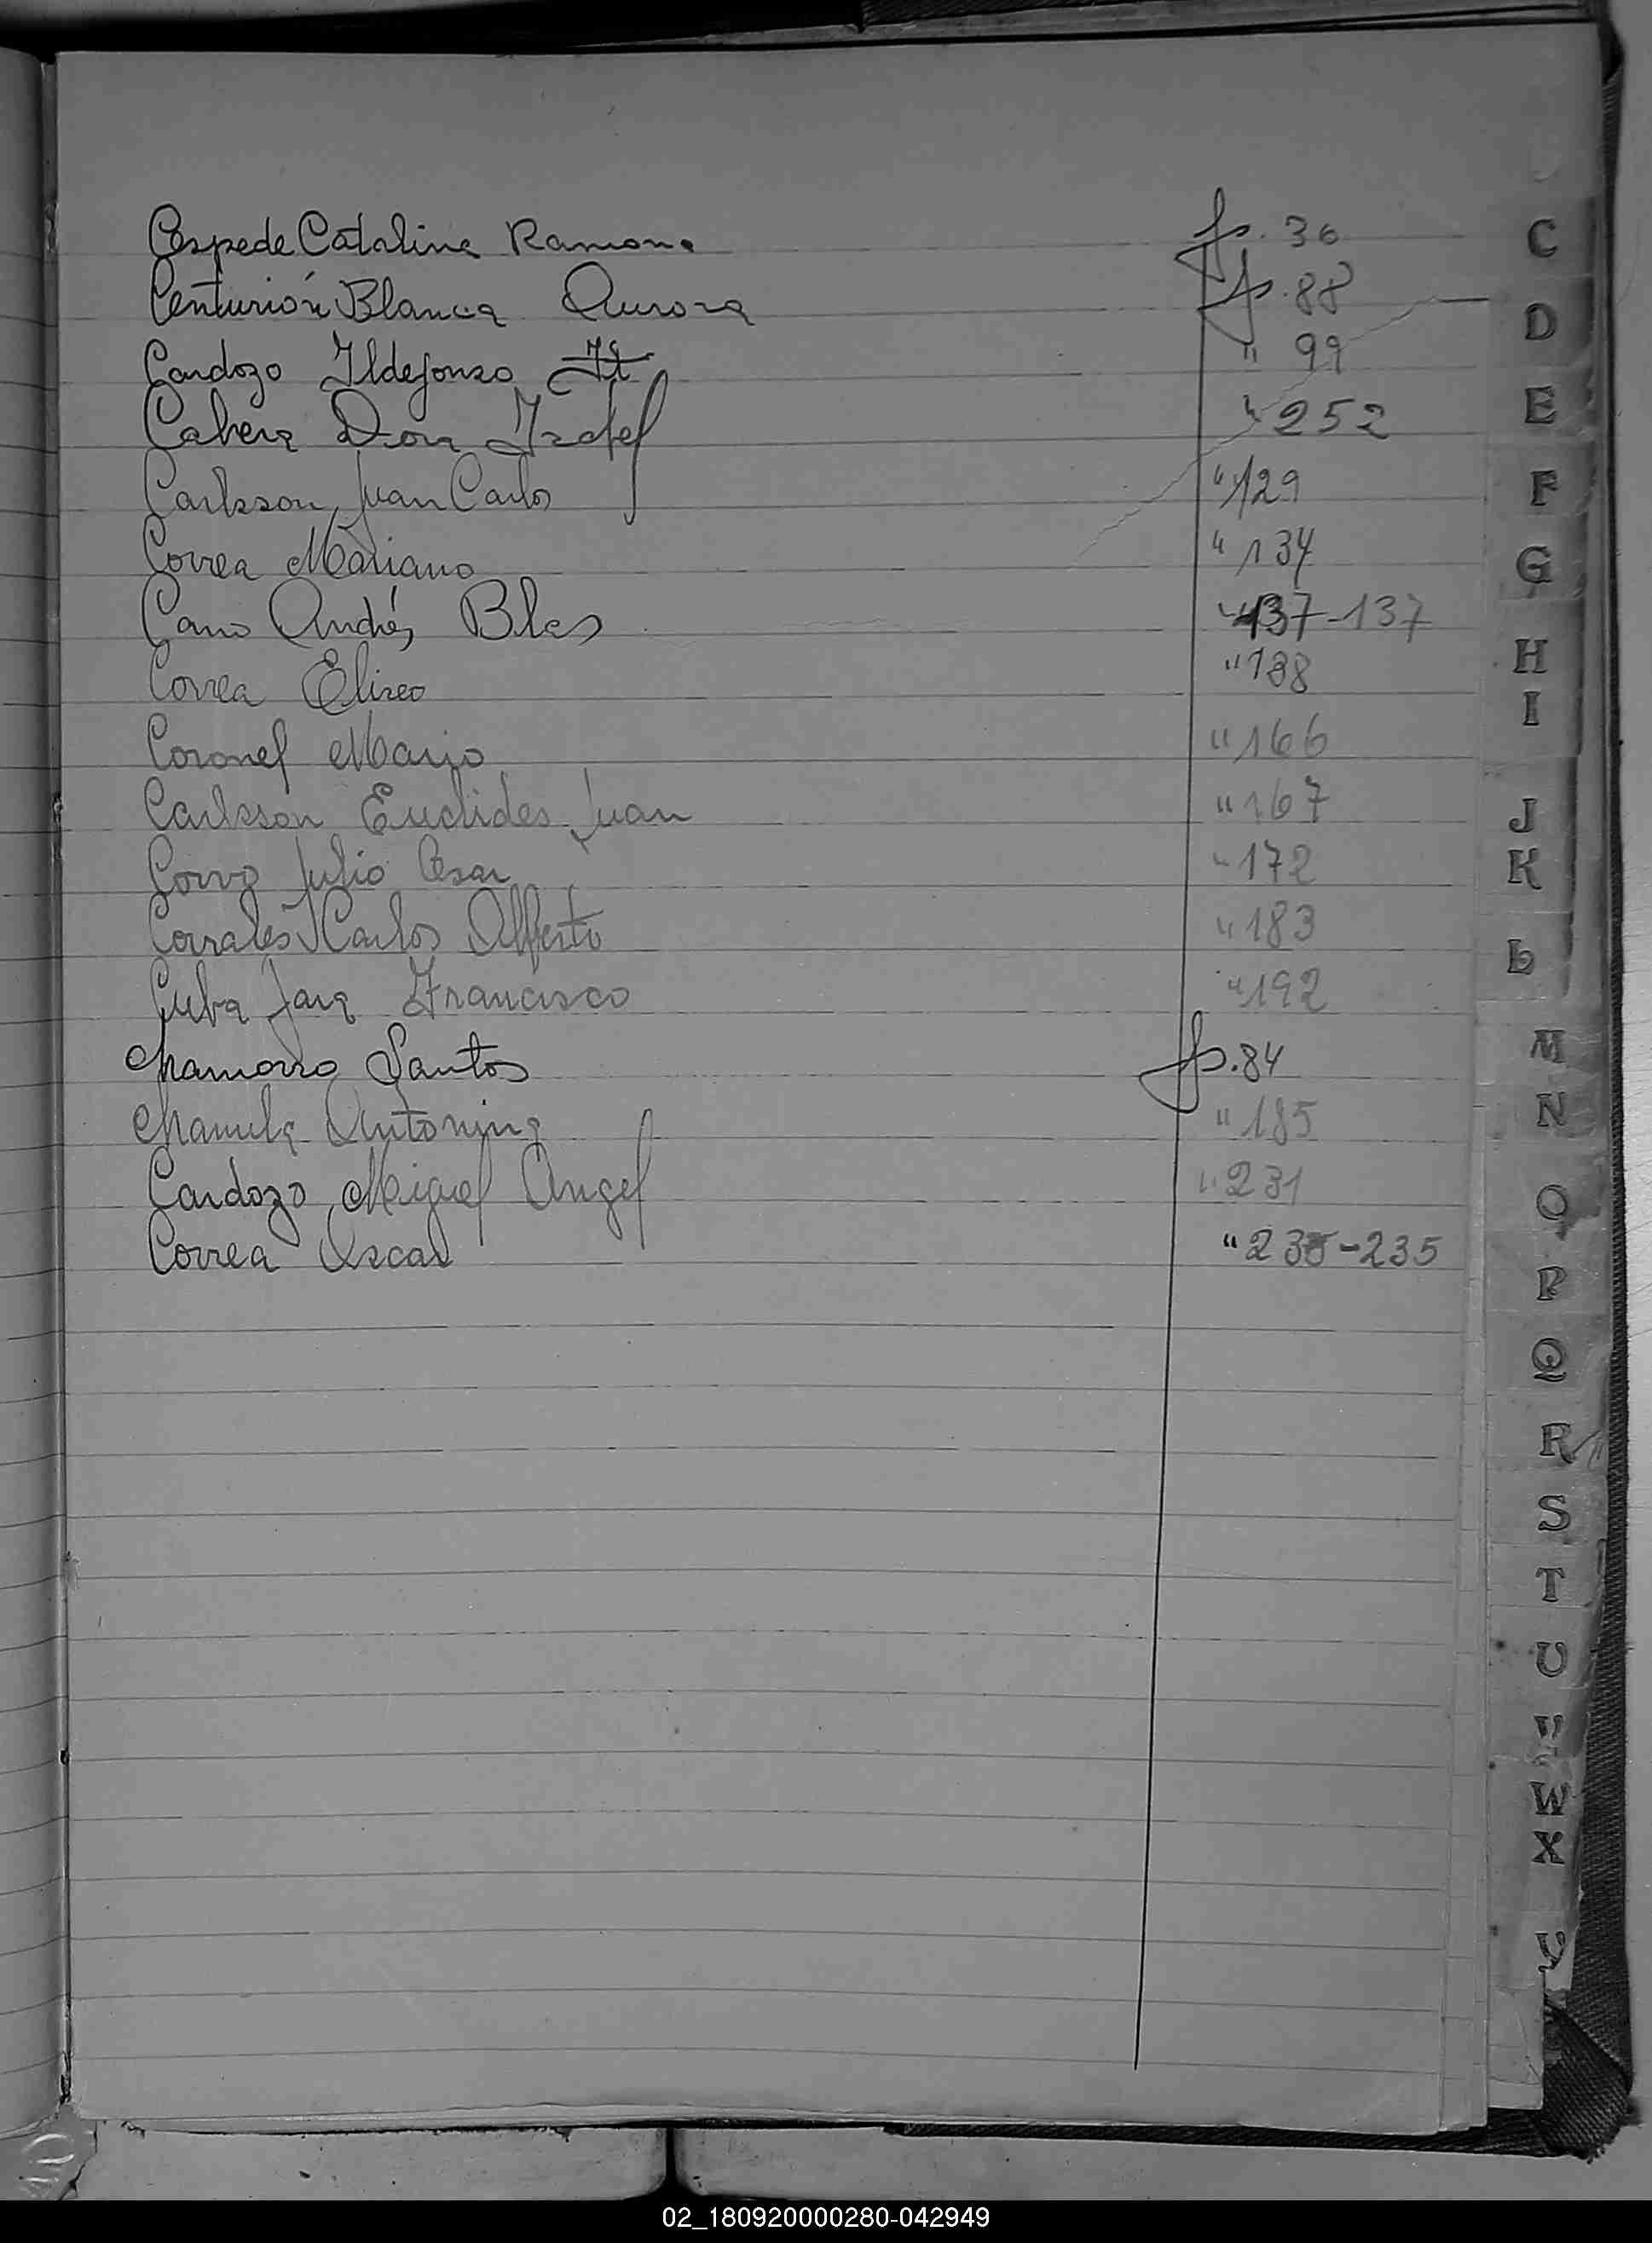 Cespede Catalina Ramona fs. 36
Centurión Blanca Aurora fs. 88
Cardozo Ildefonso " 99
Cabera Dora Izabel " 252
Carlsson Juan Carlos " 129
Correa Mariano " 134
Cano Andrés Blas " 137-137
Correa Eliseo " 138
Coronel Mario " 166
Carlsson Euclides Juan " 167
Corvo Julio Cesar " 172
Corrales Carlos Alberto " 183
Cuba Jara Francisco " 192
Chamorro Santos fs. 84
Chamula Antonina " 185
Cardozo Miguel Angel " 231
Correa Oscar " 235-235
C
D
E
F
G
H
I
J
K
L
M
N
O
P
Q
R
S
T
U
V
W
X
Y
02_180920000280-042949